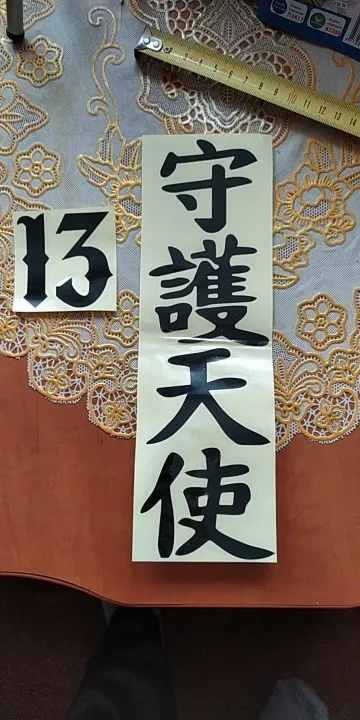 13
守護天使